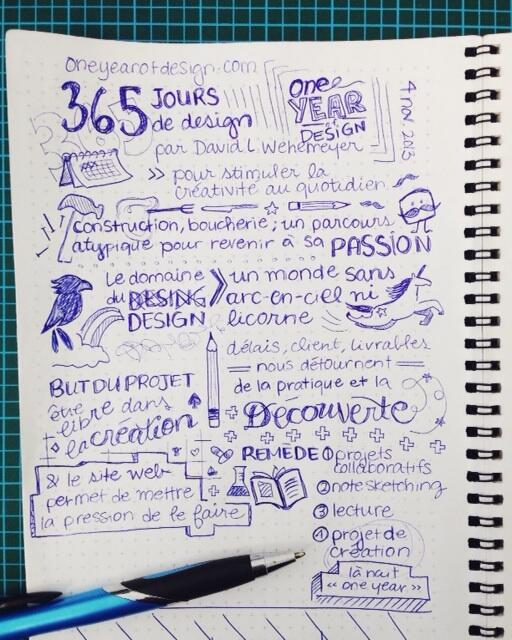 Oneyearofdesign.com
365 JOURS
de design
One
YEAR
of
DESIGN
4 nov 2013
par David L Wehemeyer
>> pour stimuler la
créativité au quotidien
construction, boucherie; un parcours
atypique pour revenir à sa PASSION
Le domaine
du DESING
DESIGN
un monde sans
arc-en-ciel ni
licorne
délais, client, livrables
nous détournent
de la pratique et la
Découverte
BUT DU PROJET
être
libre dans
la création
& le site web
permet de mettre
la pression de le faire
REMEDE ① projets
collaboratifs
② notesketching
③ lecture
④ projet de
création
là nait
<< one year >>